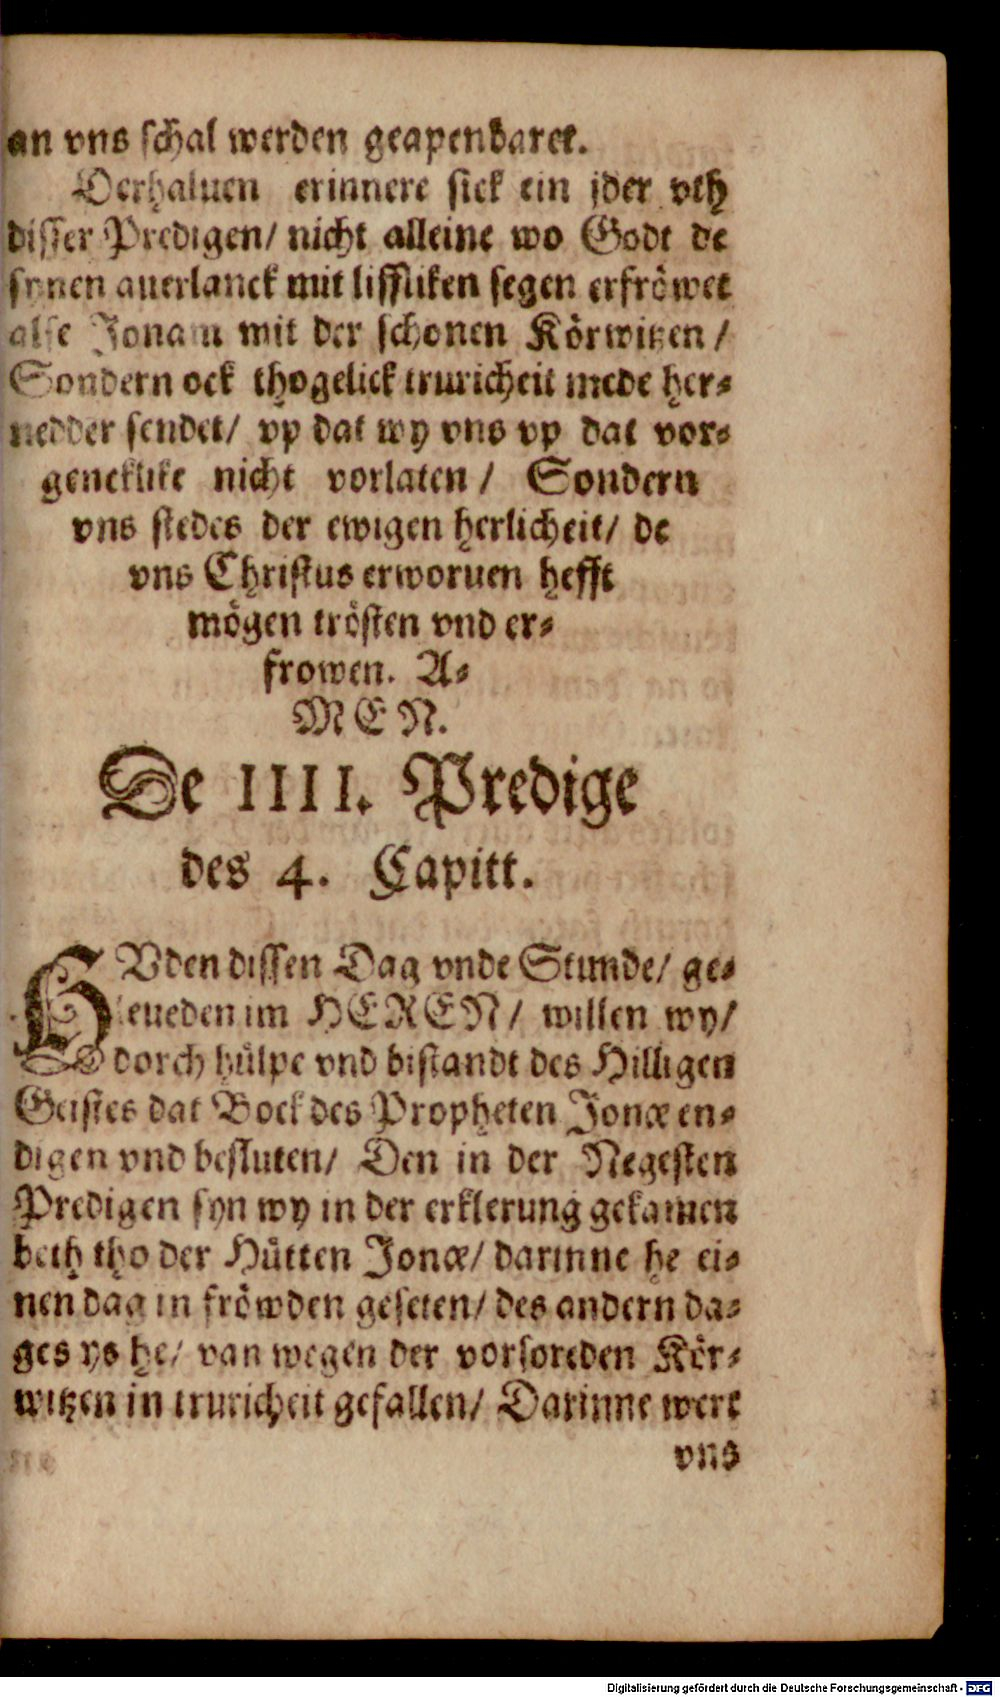 an vns schal werden geapenbaret.
Derhaluen erinnere sick ein jder vth
disser Predigen/ nicht alleine wo Godt de
synen auerlanck mit liffliken segen erfröwet
alse Jonam mit der schonen Körwitzen /
Sondern ock thogelick truricheit mede her⸗
nedder sendet/ vp dat wy vns vp dat vor⸗
geneklike nicht vorlaten / Sondern
vns stedes der ewigen herlicheit/ de
vns Christus erworuen hefft
mögen trösten vnd er⸗
frowen. A⸗
MEN.
De IIII. Predige
des 4. Capitt.
HVden dissen Dag vnde Stunde/ ge⸗
leueden im HEREN/ willen wy/
dorch hülpe vnd bistandt des Hilligen
Geistes dat Bock des Propheten Jonæ en⸗
digen vnd besluten/ Den in der Negesten
Predigen syn wy in der erklerung gekamen
beth tho der Hütten Jonæ/ darinne he ei⸗
nen dag in fröwden geseten/ des andern da⸗
ges ys he/ van wegen der vorsoreden Kör⸗
witzen in truricheit gefallen/ Darinne wert
vns
Digitalisierung gefördert durch die Deutsche Forschungsgemeinschaft - DFG